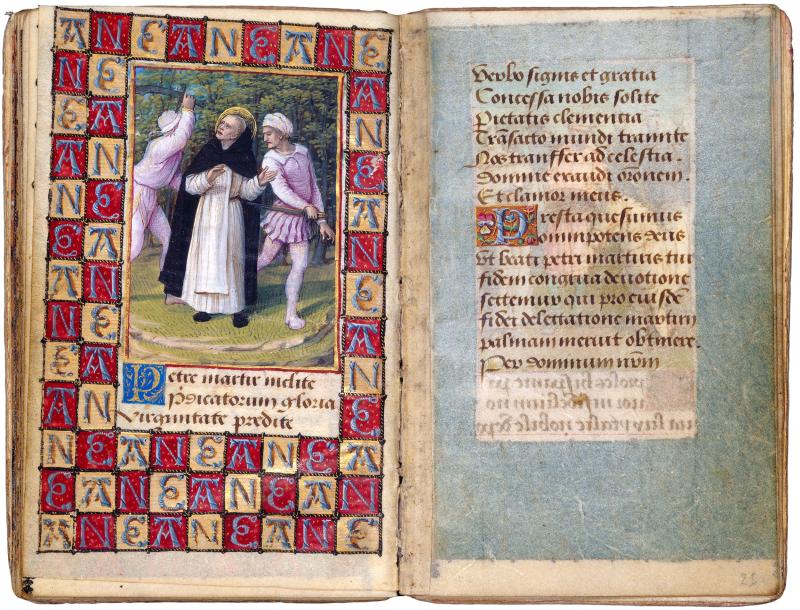 A N E A N E A N E
Petre martir inclite
Pdicatorum gloria
Virginitate predite
N E A N E A N E A
E A N E A N E A N
A N E A N E A N E
Verbo signis et gratia
Concessa nobis solite
Pietatis clementia
Trãsacto mundi tramite
Nos transfer ad celestia.
domine exaudi oronem.
Et clamor meus.
Presta quesumus
omnipotens deus
Ut beati petri martiris tui
fidem congrua deuotione
sectemur qui pro eiusdẽ
fidei delectatione martirii
palmam meruit obtinere.
Per dominum nr̃m
25